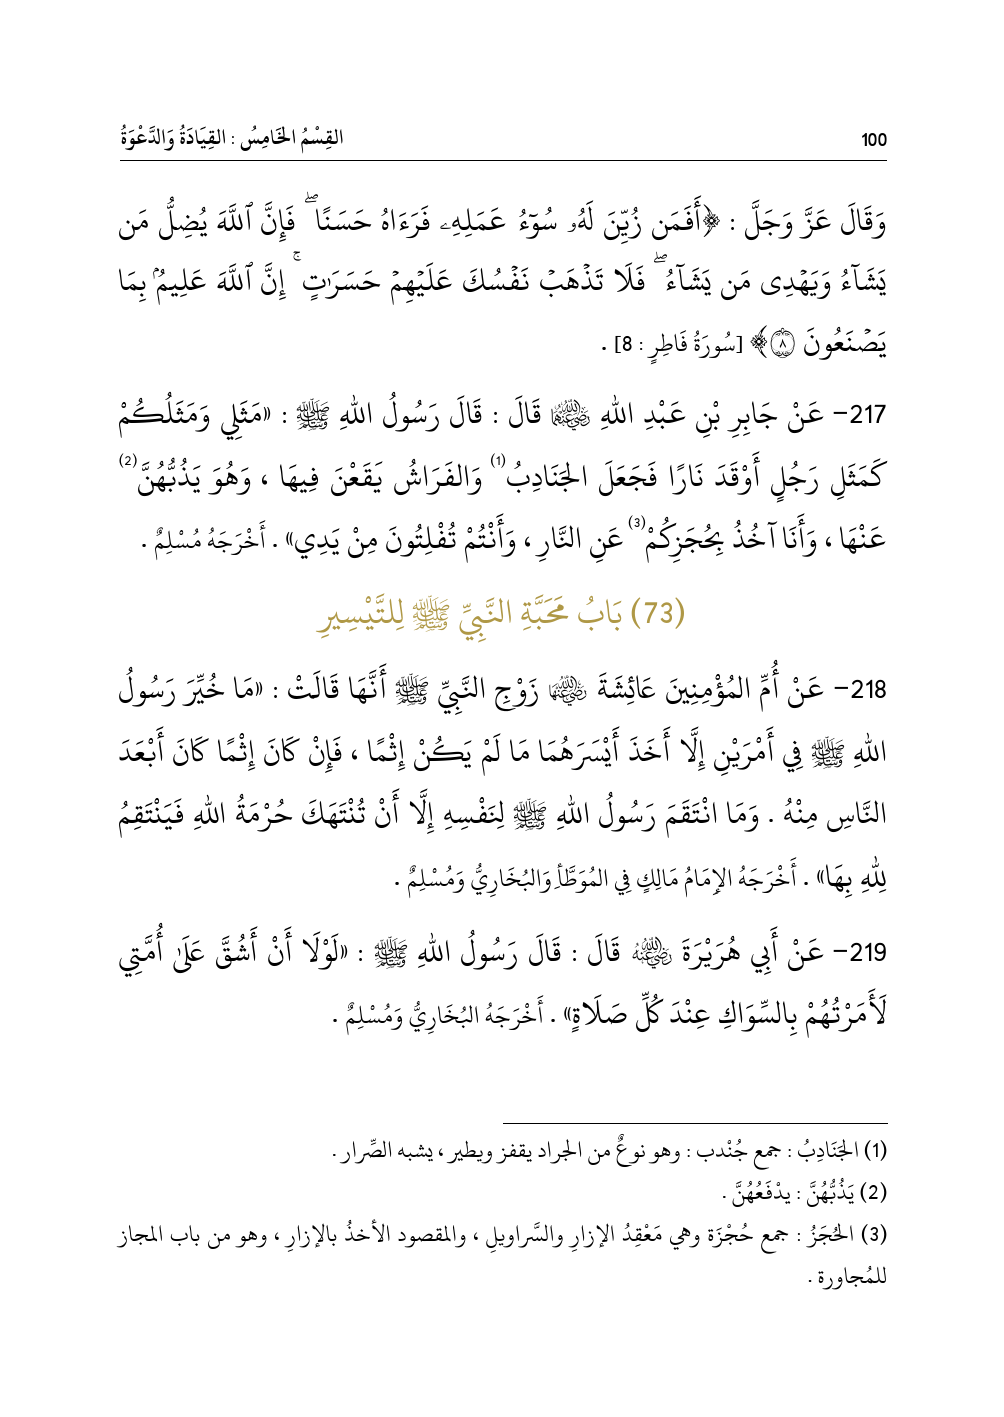 100
القِسْمُ الخَامِسُ : القِيَادَةُ وَالدَّعْوَةُ
وَقَالَ عَزَّ وَجَلَّ : ﴿أَفَمَن زُيِّنَ لَهُۥ سُوٓءُ عَمَلِهِۦ فَرَءَاهُ حَسَنًاۖ فَإِنَّ ٱللَّهَ يُضِلُّ مَن
يَشَآءُ وَيَهۡدِى مَن يَشَآءُۖ فَلَا تَذۡهَبۡ نَفۡسُكَ عَلَيۡهِمۡ حَسَرَٰتٍۚ إِنَّ ٱللَّهَ عَلِيمُۢ بِمَا
يَصۡنَعُونَ ۝٨﴾ [سُورَةُ فَاطِرٍ : 8] .
217- عَنْ جَابِرِ بْنِ عَبْدِ اللهِ رضي الله عنهما قَالَ : قَالَ رَسُولُ اللهِ ﷺ : «مَثَلِي وَمَثَلُكُمْ
كَمَثَلِ رَجُلٍ أَوْقَدَ نَارًا فَجَعَلَ الجَنَادِبُ(1) وَالفَرَاشُ يَقَعْنَ فِيهَا ، وَهُوَ يَذُبُّهُنَّ(2)
عَنْهَا ، وَأَنَا آخُذُ بِحُجَزِكُمْ(3) عَنِ النَّارِ ، وَأَنْتُمْ تُفْلِتُونَ مِنْ يَدِي» . أَخْرَجَهُ مُسْلِمٌ .
(73) بَابُ مَحَبَّةِ النَّبِيِّ ﷺ لِلتَّيْسِيرِ
218- عَنْ أُمِّ المُؤْمِنِينَ عَائِشَةَ رضي الله عنها زَوْجِ النَّبِيِّ ﷺ أَنَّهَا قَالَتْ : «مَا خُيِّرَ رَسُولُ
اللهِ ﷺ فِي أَمْرَيْنِ إِلَّا أَخَذَ أَيْسَرَهُمَا مَا لَمْ يَكُنْ إِثْمًا ، فَإِنْ كَانَ إِثْمًا كَانَ أَبْعَدَ
النَّاسِ مِنْهُ . وَمَا انْتَقَمَ رَسُولُ اللهِ ﷺ لِنَفْسِهِ إِلَّا أَنْ تُنْتَهَكَ حُرْمَةُ اللهِ فَيَنْتَقِمُ
لِلهِ بِهَا» . أَخْرَجَهُ الإِمَامُ مَالِكٍ فِي المُوَطَّأِ وَالبُخَارِيُّ وَمُسْلِمٌ .
219- عَنْ أَبِي هُرَيْرَةَ رضي الله عنه قَالَ : قَالَ رَسُولُ اللهِ ﷺ : «لَوْلَا أَنْ أَشُقَّ عَلَىٰ أُمَّتِي
لَأَمَرْتُهُمْ بِالسِّوَاكِ عِنْدَ كُلِّ صَلَاةٍ» . أَخْرَجَهُ البُخَارِيُّ وَمُسْلِمٌ .
(1) الجَنَادِبُ : جمع جُنْدب : وهو نوعٌ من الجراد يقفز ويطير ، يشبه الصِّرار .
(2) يَذُبُّهُنَّ : يدْفَعُهُنَّ .
(3) الحُجَزُ : جمع حُجْزَة وهي مَعْقِدُ الإزارِ والسَّراويلِ ، والمقصود الأخذُ بالإزارِ ، وهو من باب المجاز
للمُجاورة .